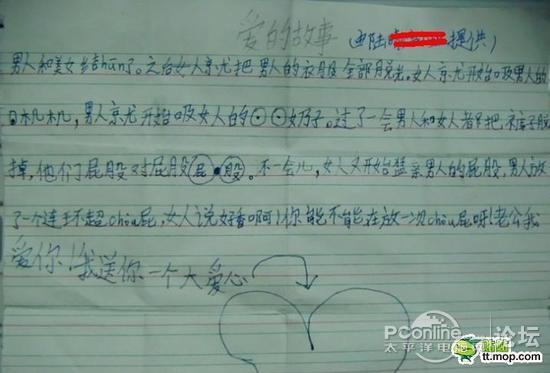 爱的故事 (由陆 提供)
男人和美女结hūn了。之后女人就把男人的衣服全部脱光。女人就开始吸男人的
机机,男人就开始吸女人的⊙⊙奶子。过了一会男人和女人都把裤子脱
掉,他们屁股对屁股 屁·股。不一会儿,女人又开始猛亲男人的屁股,男人放
了一个连 不超chòu屁,女人说好香啊!你能不能在放一次chòu屁呀!老公我
爱你!我送你一个大爱心
PConline 论坛
太平洋电
猫扑
tt.mop.com